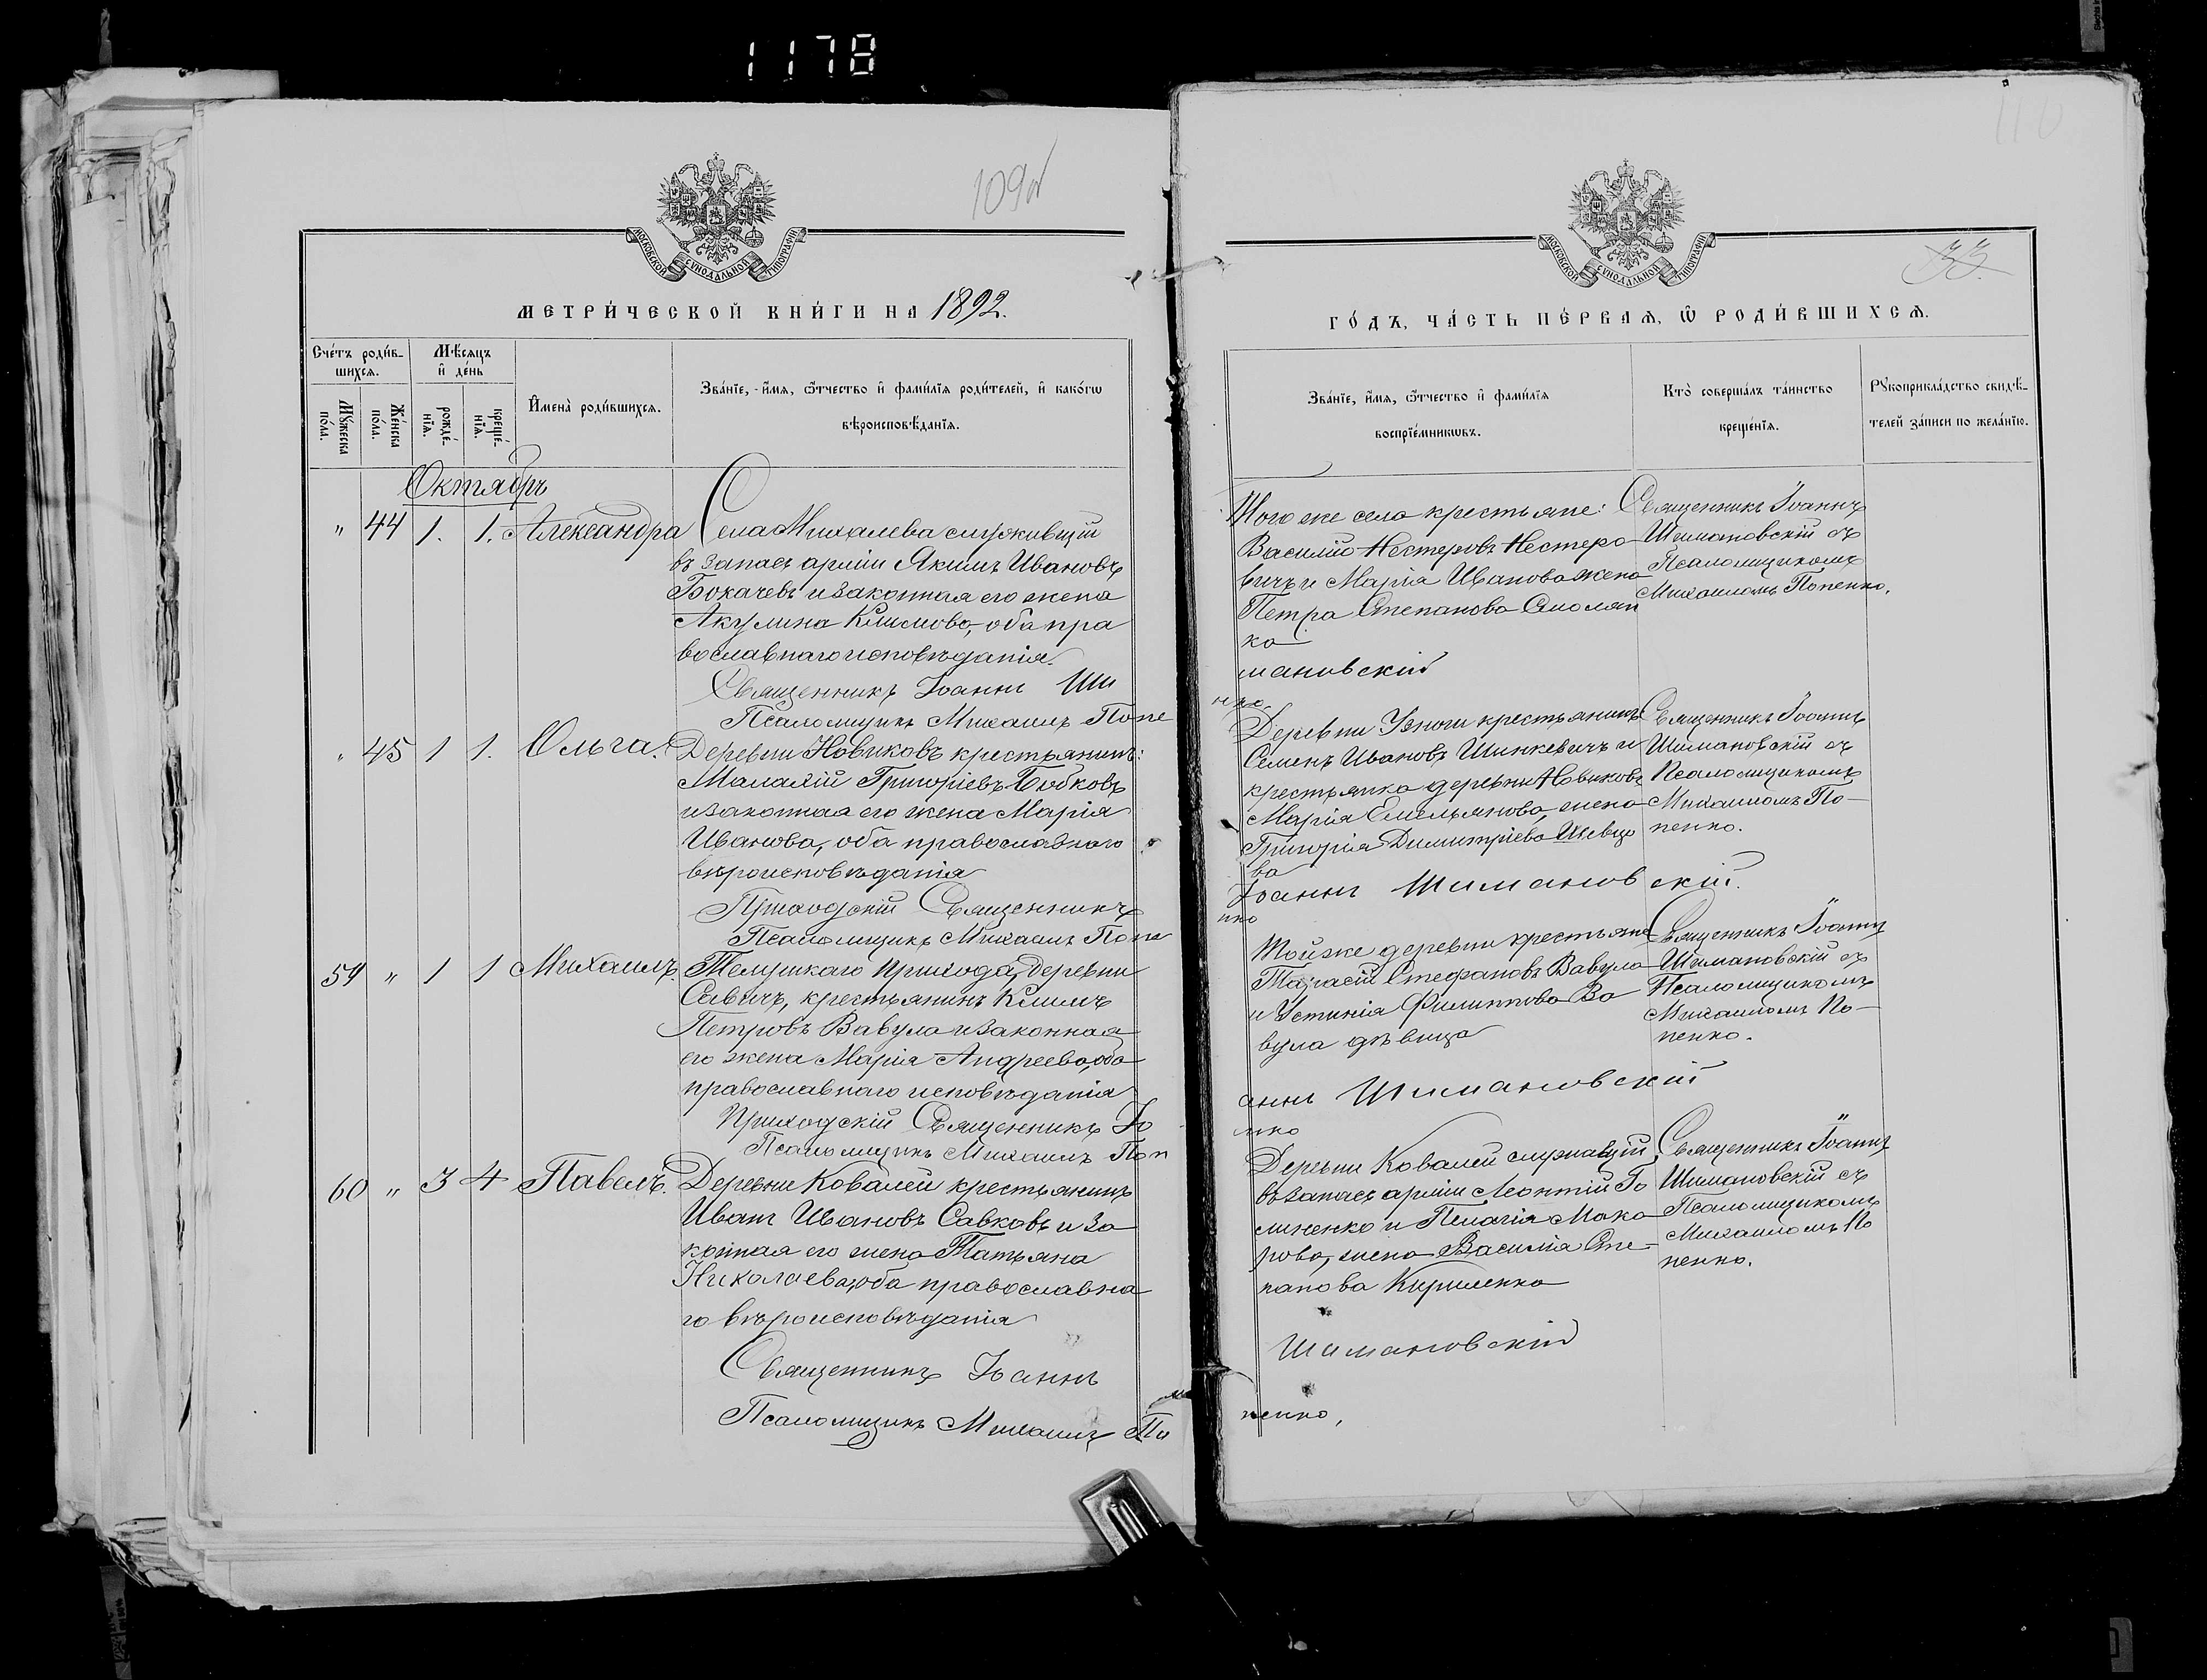 1178
109об
МОСКОВСКОЙ СУНОДАЛЬНОЙ ТИПОГРАФІИ
МЕТРИ́ЧЕСКОЙ КНИ́ГИ НА 1892.
Сче́тъ роди́в-
шихсѧ.
Мѣ́сѧцъ
и҆ де́нь
Мꙋ́жеска
по́ла.
Же́нска
по́ла.
рожде́-
нїѧ.
креще́-
нїѧ.
И҆мена̀ роди́вшихсѧ.
Зва́нїе, и҆́мѧ, ѻ҆́тчество и҆ фами́лїѧ роди́телей, и҆ како́гѡ
вѣроисповѣ́данїѧ.
Октябрь
" 44 1. 1. Александра
Села Михалева служившій
въ запасѣ арміи Якимъ Ивановъ
Бокачевъ и законная его жена
Акулина Климова, оба пра
вославнаго исповѣданія.
Священникъ Іоаннъ Ши
Псаломщикъ Михаилъ Попе
" 45 1 1. Ольга.
Деревни Новиковъ крестьянинъ:
Малахій Григоріевъ Бобковъ
и законная его жена Марія
Иванова, оба православнаго
вѣроисповѣданія
Приходскій Священникъ
Псаломщикъ Михаилъ Попе
59 " 1 1 Михаилъ.
прихода, деревни
Савичъ, крестьянинъ Климъ
Петровъ Вавула и законная
его жена Марія Андреева, оба
православнаго исповѣданія
Приходскій Священникъ Іо
Псаломщикъ Михаилъ Поп
60 " 3 4 Павелъ.
Деревни Ковалей крестьянинъ
Иванъ Ивановъ Савковъ и за
конная его жена Татьяна
Николаева, оба православна
го вѣроисповѣданія
Священникъ Іоаннъ
Псаломщикъ Михаилъ По
110
33.
МОСКОВСКОЙ СУНОДАЛЬНОЙ ТИПОГРАФІИ
ГО́ДЪ, ЧА́СТЬ ПЕ́РВАѦ, Ѡ҆ РОДИ́ВШИХСѦ.
Зва́нїе, и҆́мѧ, ѻ҆́тчество и҆ фами́лїѧ
воспрїе́мникѡвъ.
Кто̀ соверша́лъ та́инство
креще́нїѧ.
Рꙋкоприкла́дство свидѣ́-
телей за́писи по жела́нїю.
Того же села крестьяне:
Василій Нестеровъ Нестеро
вичъ и Марія Иванова жена
Петра Степанова Смоляк
ка
мановскій
нко
Священникъ Іоаннъ
Шимановскій съ
Псаломщикомъ
Михаиломъ Попенко.
Деревни Узноги крестьянинъ
Семенъ Ивановъ Шинкевичъ и
крестьянка деревни Новиковъ
Марія Емельянова, жена
Григорія Димитріева Шевцо
ва
Іоаннъ Шимановскій.
нко
Священникъ Іоаннъ
Шимановскій съ
Псаломщикомъ
Михаиломъ По-
пенко.
Той же деревни крестьяне
Тарасій Стефановъ Вавула
и Устинія Филиппова Ва
вула дѣвица
аннъ Шимановскій
енко
Священникъ Іоаннъ
Шимановскій съ
Псаломщикомъ
Михаиломъ По-
пенко.
Деревни Ковалей служащій
въ запасѣ арміи Леонтій Го
линенко и Пелагія Мака
рова, жена Василія Сте-
панова Кириленко
Шимановскій
пенко,
Священникъ Іоаннъ
Шимановскій съ
Псаломщикомъ
Михаиломъ По
пенко.